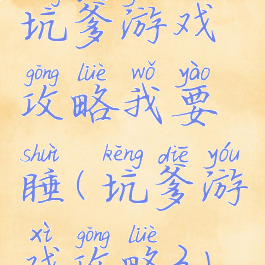 坑爹游戏
gōng lüè wǒ yào
攻略我要
shuì kēng diē yóu
睡(坑爹游
xì gōng lüè
戏攻略3)